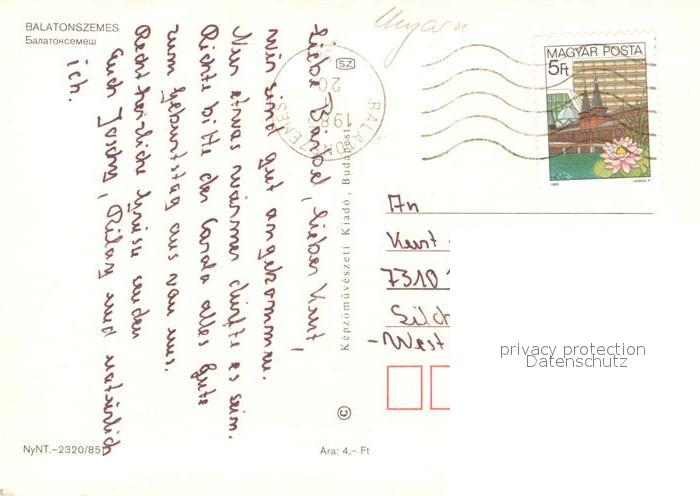 BALATONSZEMES
Балатонсемеш
Ungarn
MAGYAR POSTA
5Ft
SZ
20
198
BALATONSZEMES
Liebe Bärbel, lieber Kurt,
wir sind gut angekommen.
Nur etwas wärmer dürfte es sein.
Richte bitte der Carola alles Gute
zum Geburtstag aus von uns.
Recht herzliche Grüsse senden
Euch Joschy, und natürlich
ich.
Képzőművészeti Kiadó, Budapest
An
Kurt
7310
- West
privacy protection
Datenschutz
©
NyNT.–2320/851
Ára: 4,– Ft